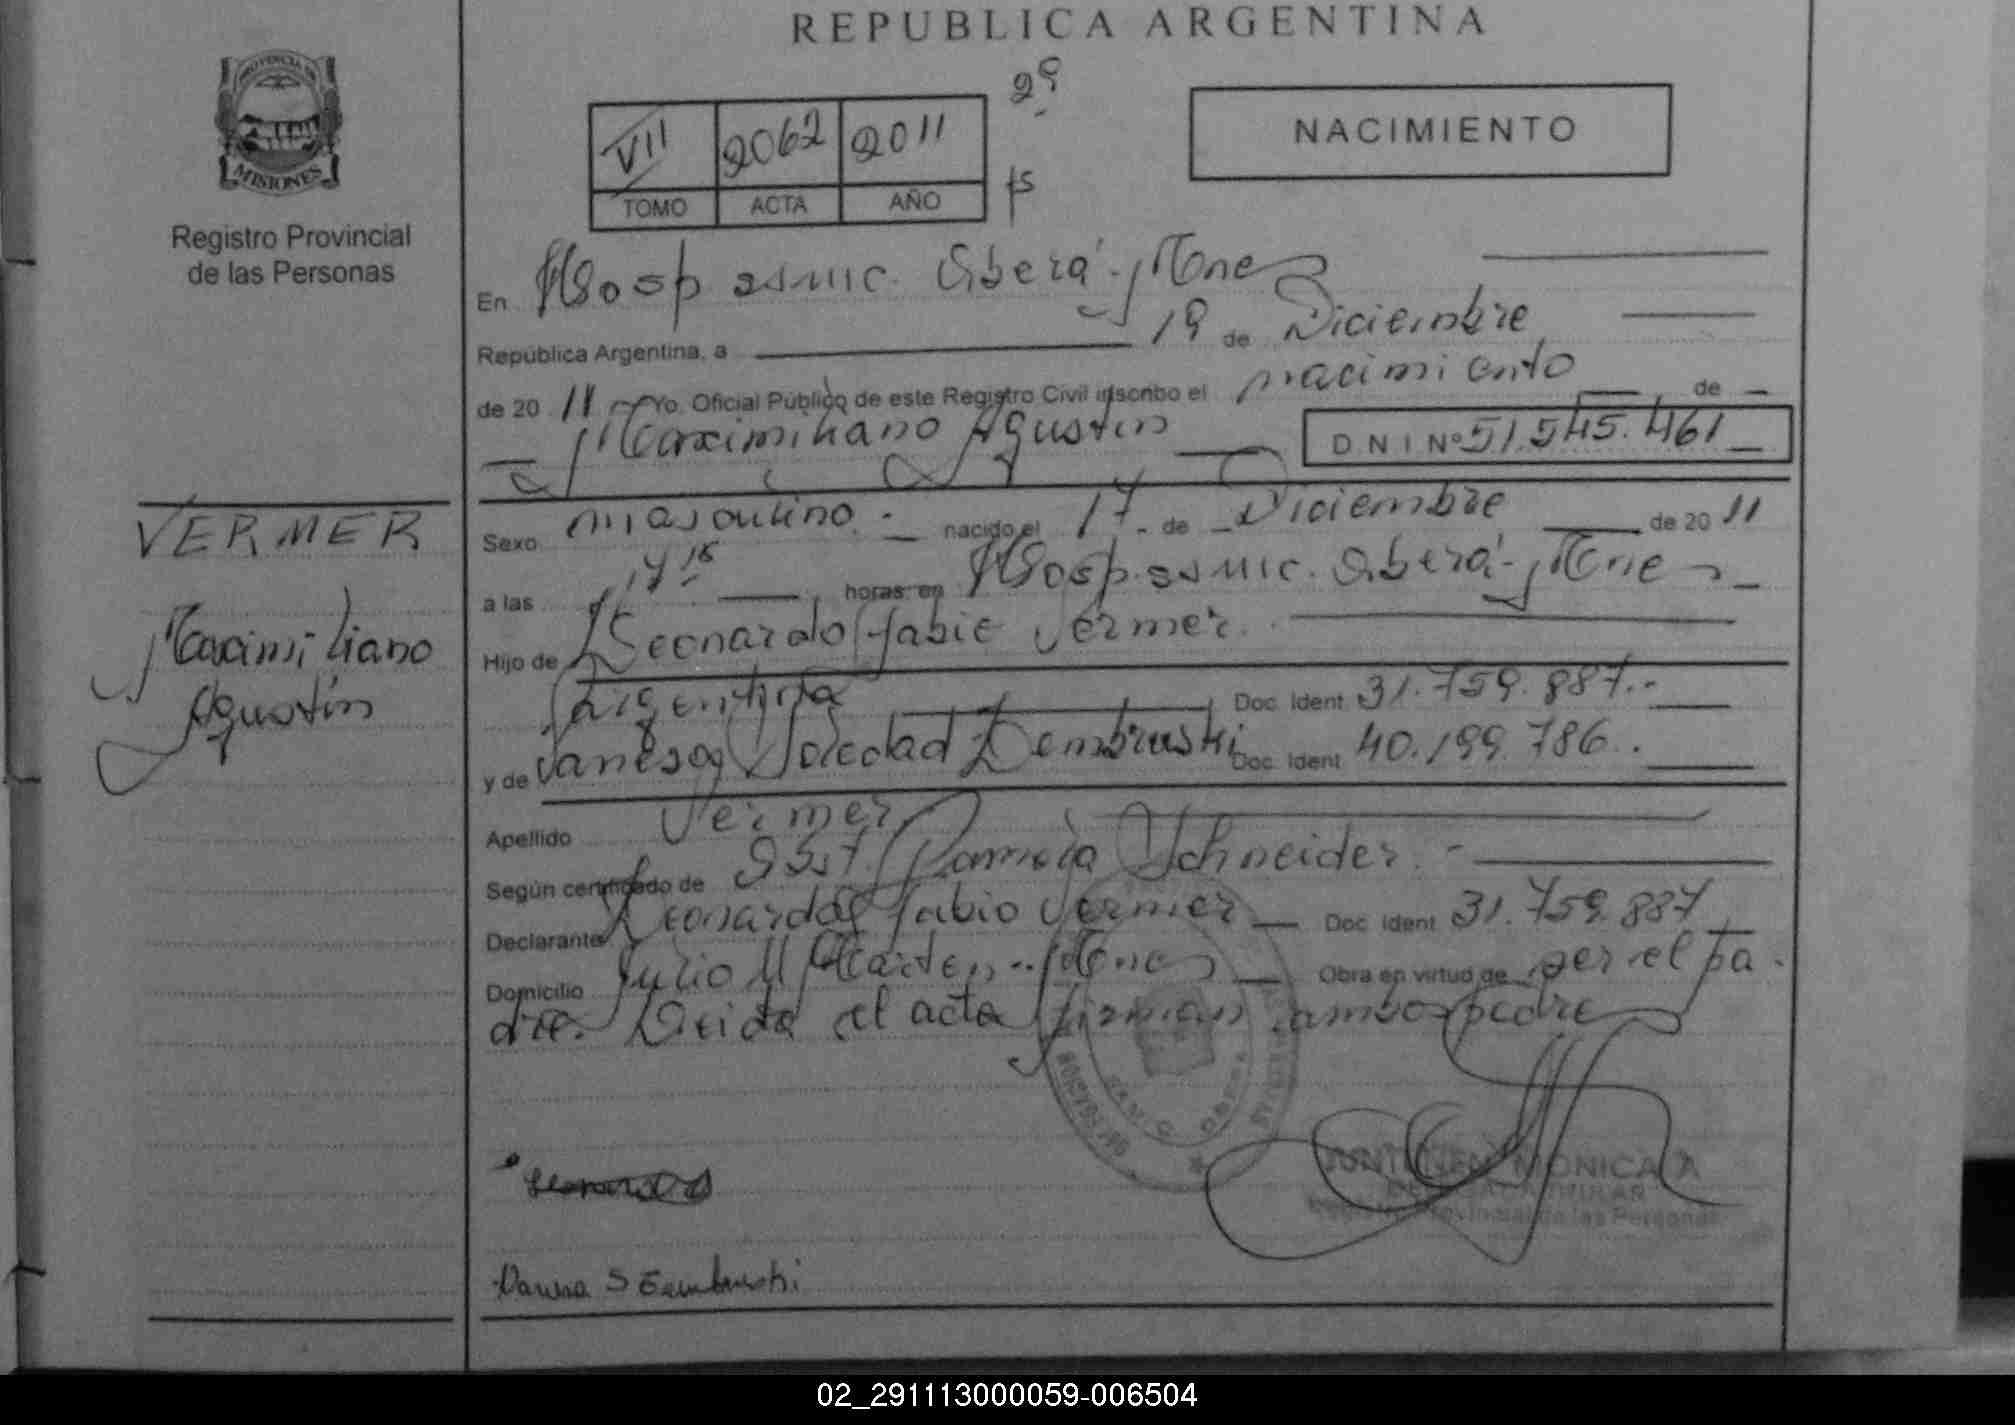 REPUBLICA ARGENTINA
PROVINCIA DE
MISIONES
Registro Provincial
de las Personas
VII 2062 2011
TOMO ACTA AÑO
NACIMIENTO
En Hosp ssmic. Oberá - Mnes
República Argentina, a 19 de Diciembre
de 20 11 Yo, Oficial Público de este Registro Civil inscribo el nacimiento de
Maximiliano Agustín
D N I Nº 51.545.461
VERMER
Maximiliano
Agustín
Sexo masculino nacido el 17 de Diciembre de 20 11
a las 14 15 horas en Hosp. ssmic. Oberá - Mnes
Hijo de Leonardo Fabio Vermer
Argentina Doc. Ident. 31.759.887
y de Vanesa Soledad Dembruski Doc. Ident. 40.199.786
Apellido Vermer
Según certificado de Obst. Pamela Schneider
Declarante Leonardo Fabio Vermer Doc. Ident. 31.759.887
Domicilio Julio U Martin - Mnes Obra en virtud de ser el pa
dre. Leida el acta firman ambos padres
MONICA A
TITULAR
Registro Provincial de las Personas
02_291113000059-006504